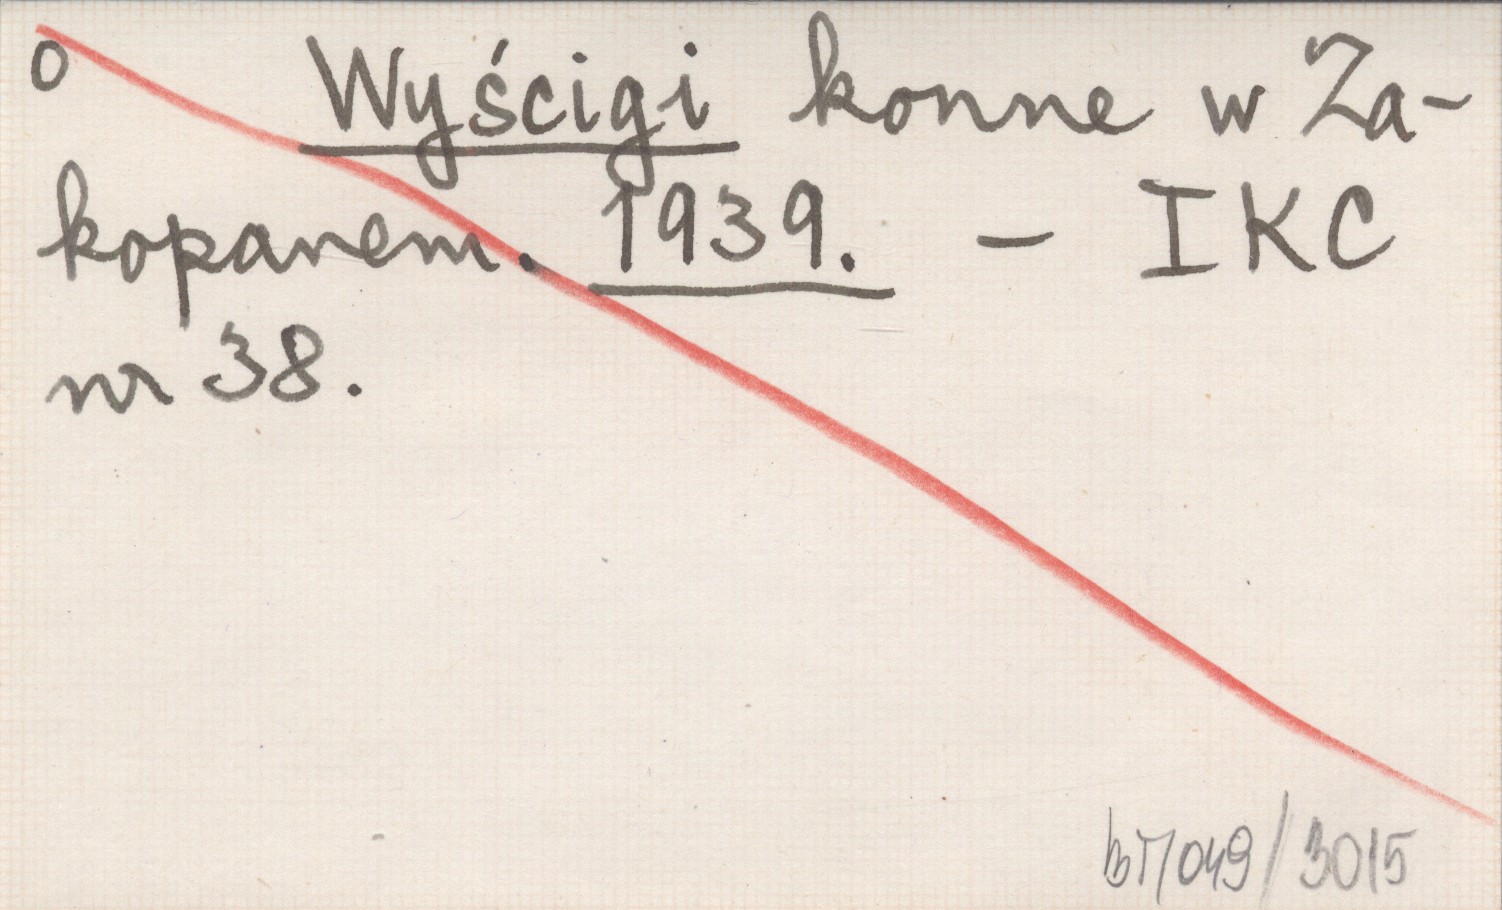 o Wyścigi konne w Za-
kopanem. 1939. – IKC
nr 38.
/3015